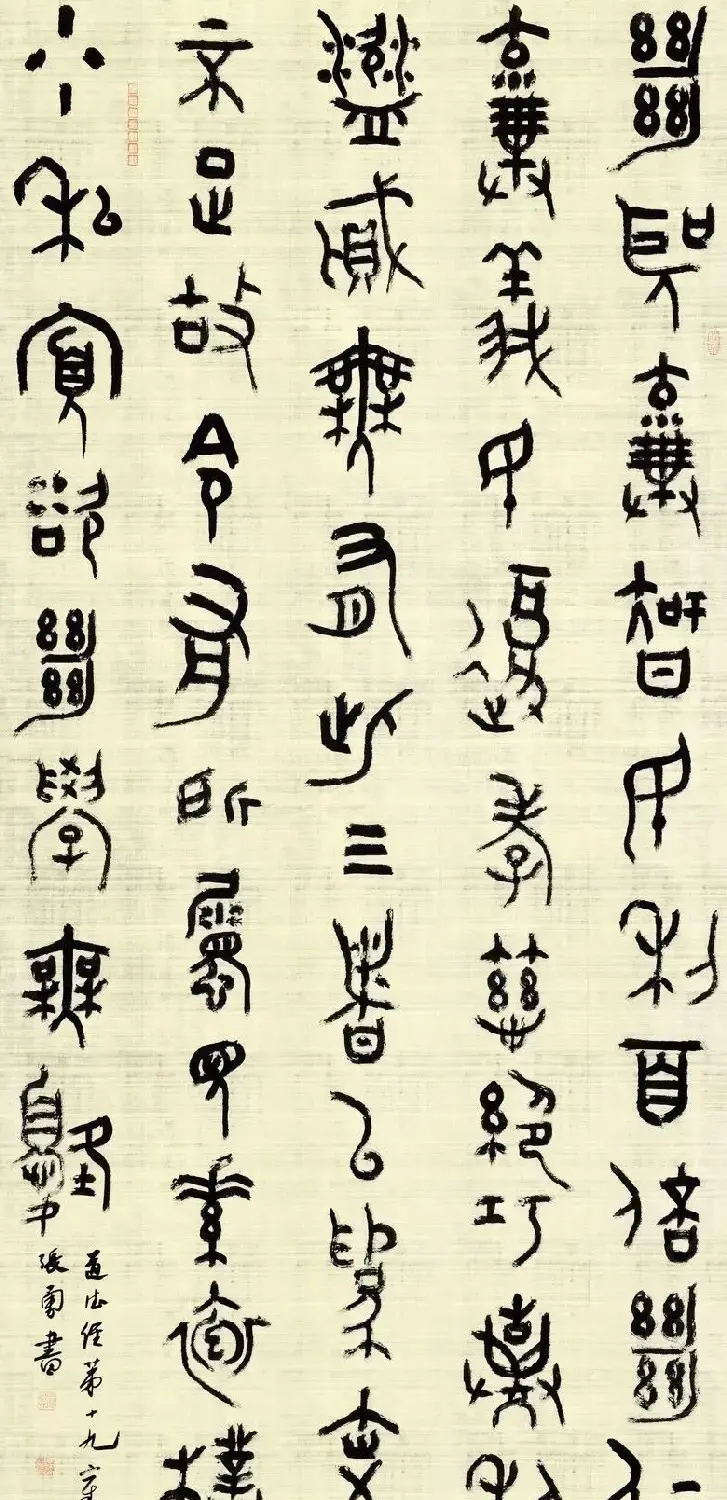 絕聖棄智民利百倍絕仁
棄義民復孝慈絕巧棄利
盜賊無有此三者以為文
不足故令有所屬見素抱樸
少私寡欲絕學無憂
道德經第十九章
張勇書